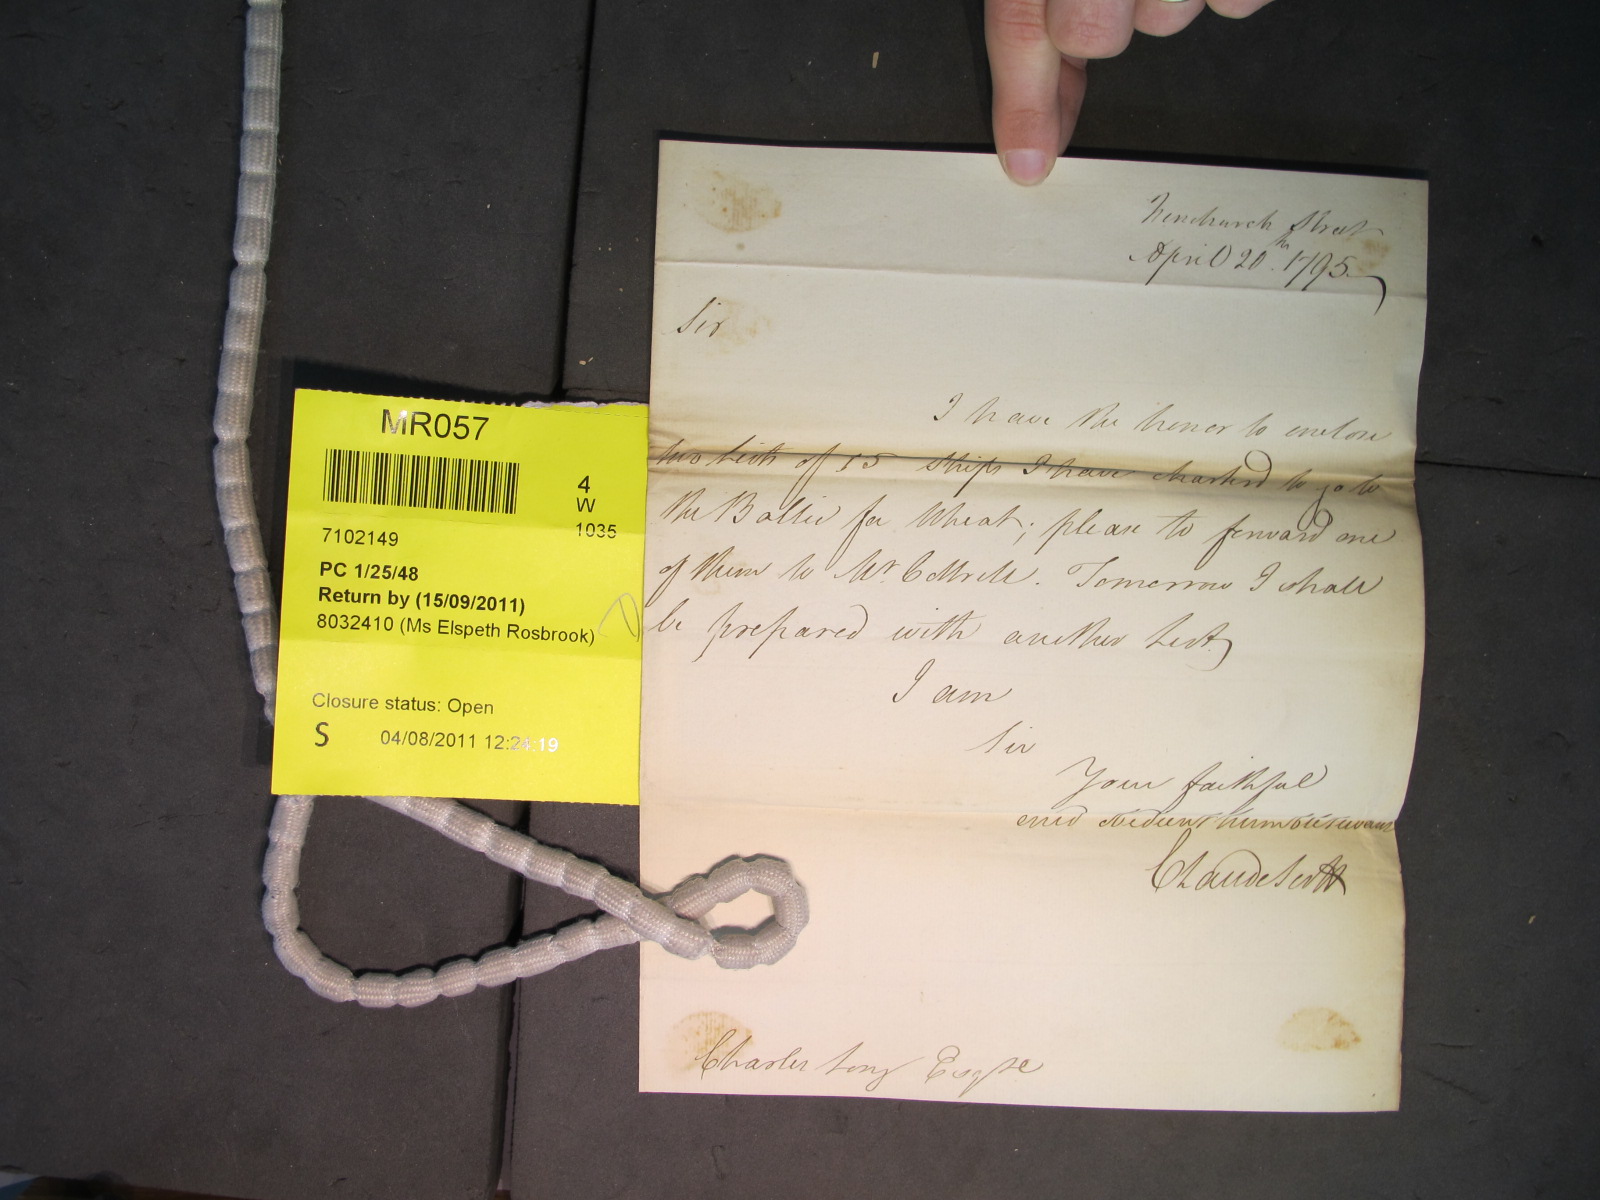 MR057
4
W
1035
7102149
PC 1/25/48
Return by (15/09/2011)
8032410 (Ms Elspeth Rosbrook)
Closure status: Open
S 04/08/2011 12:24:19
Fenchurch Street
April 20th 1795
Sir
I have the honor to enclose
two lists of 15 Ships I have charterd to go to
the Baltic for Wheat; please to forward one
of them to Mr. Cottrell. Tomorrow I shall
be prepared with another List.
I am
Sir
Your faithful
and obedient humble servant
Claude Scott
Charles Long Esqre